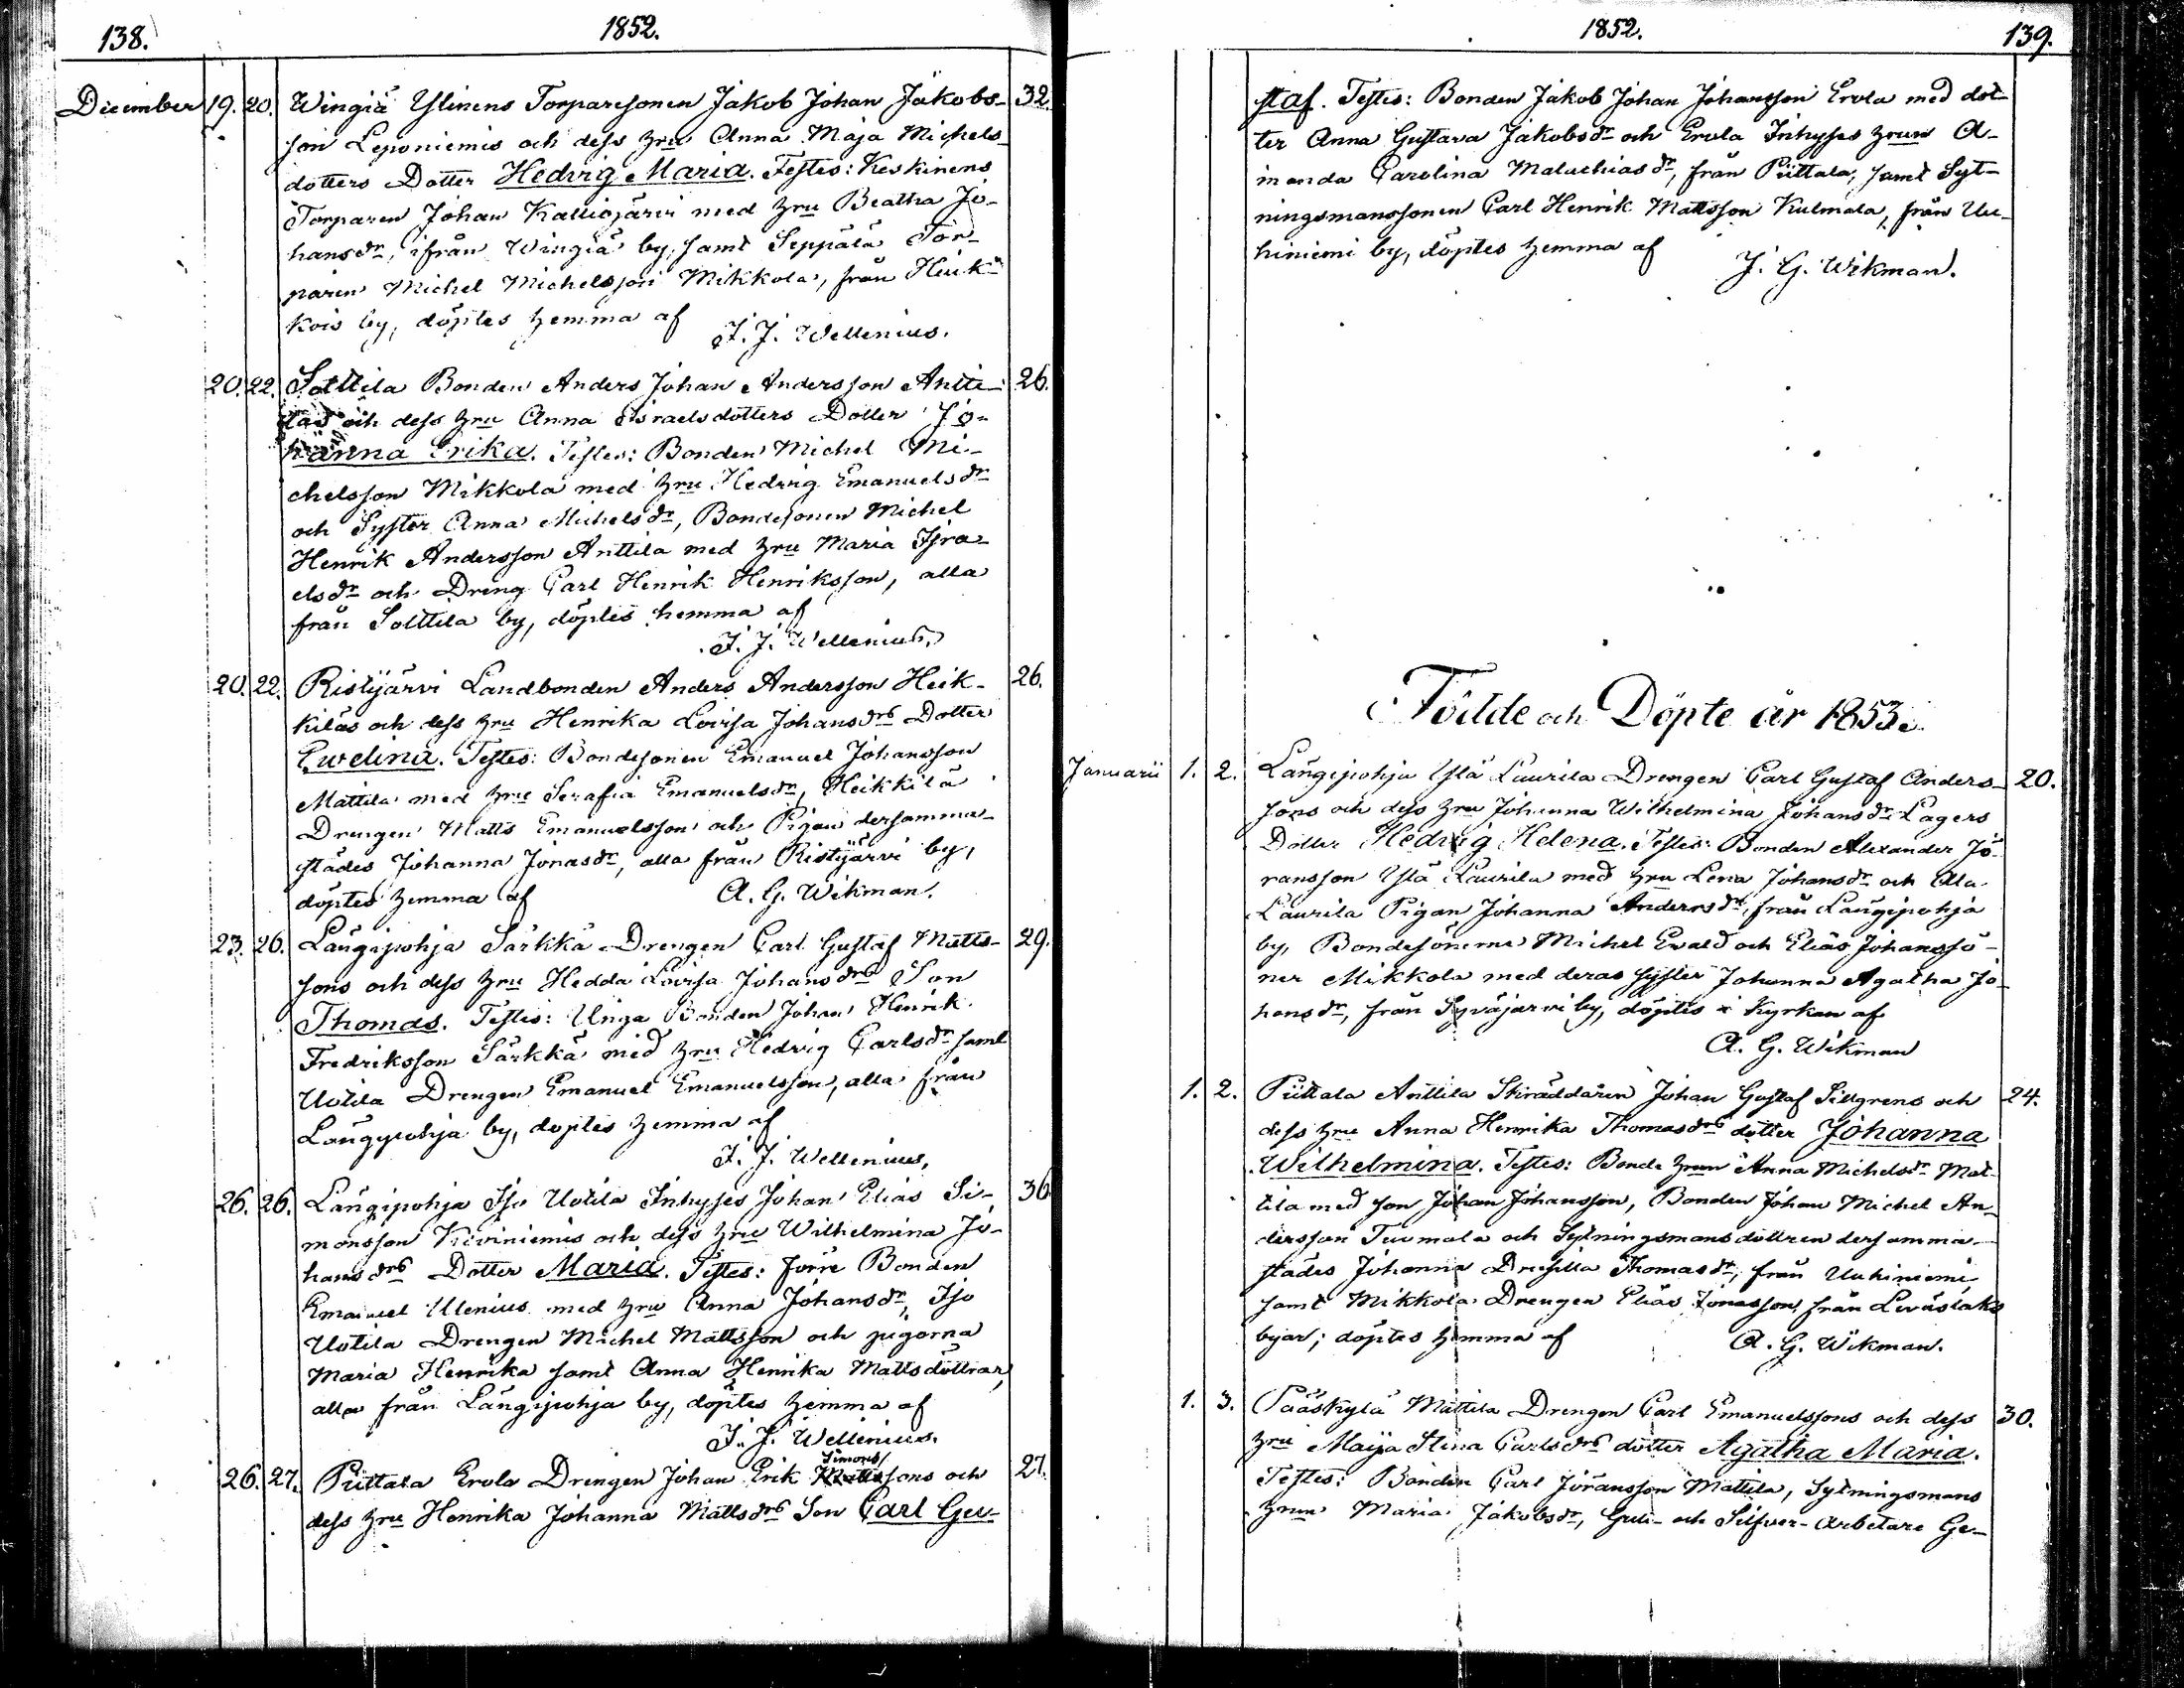 138. 1852.
December 19. 20. Wingiä Ylinens Torparesonen Jakob Johan Jakobs- 32.
son Leponiemis och dess hru Anna Maja Michels-
dotters Dotter Hedvig Maria. Testes: Keskinens
Torparen Johan Kalliojärvi med hru Beatha Jo-
hansdr, ifrån Wingiä by, samt Seppälä Tor-
paren Michel Michelsson Mikkola, från Heik-
kois by, döptes hemma af
J. J. Wellenius.
20. 22. Solttila Bonden Anders Johan Andersson Antti- 26.
las och dess hru Anna Israelsdotters Dotter Jo-
hanna Erika. Testes: Bonden Michel Mi-
chelsson Mikkola med hru Hedvig Emanuelsdr
och Syster Anna Michelsdr, Bondesonen Michel
Henrik Andersson Anttila med hru Maria Isra-
elsdr och Dreng Carl Henrik Henriksson, alla
från Solttila by, döptes hemma af
J. J. Wellenius.
20. 22. Ristijärvi Landbonden Anders Andersson Heik- 26.
kiläs och dess hru Henrika Lovisa Johansdrs Dotter
Ewelina. Testes: Bondesonen Emanuel Johansson
Mattila med hru Serafia Emanuelsdr, Heikkilä
Drengen Matts Emanuelsson och Pigan dersamma-
städes Johanna Jonasdr, alla från Ristijärvi by,
döptes hemma af A. G. Wikman.
23. 26. Längipohja Särkkä Drengen Carl Gustaf Matts- 29.
sons och dess hru Hedda Lovisa Johansdrs Son
Thomas. Testes: Unga Bonden Johan Henrik
Fredriksson Särkkä med hru Hedvig Carlsdr samt
Uotila Drengen Emanuel Emanuelsson, alla från
Längipohja by, döptes hemma af
J. J. Wellenius.
26. 26. Längipohja Iso Uotila Inhyses Johan Elias Si- 36
monsson Kiviniemis och dess hru Wilhelmina Jo-
hansdrs Dotter Maria. Testes: förre Bonden
Emanuel Ulenius med hru Anna Johansdr, Iso
Uotila Drengen Michel Mattsson och pigorna
Maria Henrika samt Anna Henrika Mattsdöttrar,
alla från Längipohja by, döptes hemma af
J. J. Wellenius.
Simons/
26. 27. Püttala Erola Drengen Johan Erik Mattssons och 27.
dess hru Henrika Johanna Mattsdrs Son Carl Gu-
1852. 139.
staf. Testes: Bonden Jakob Johan Johansson Erola med dot-
ter Anna Gustava Jakobsdr och Erola Inhyses hrun A-
manda Carolina Malachiasdr, från Püttala, samt Syt-
ningsmanssonen Carl Henrik Mattsson Kulmala, från Uu-
hiniemi by, döptes hemma af
J. G. Wikman.
Födde och Döpte år 1853.
Januarii 1. 2. Längipohja Ylä Laurila Drengen Carl Gustaf Anders- 20.
sons och dess hru Johanna Wilhelmina Johansdr Lagers
Dotter Hedvig Helena. Testes: Bonden Alexander Jö-
ransson Ylä Laurila med hru Lena Johansdr och Ala
Laurila Pigan Johanna Andersdr, från Längipohja
by, Bondesönerne Michel Evald och Elias Johansso-
ner Mikkola med deras syster Johanna Agatha Jo-
hansdr, från Syväjärvi by, döptes i Kyrkan af
A. G. Wikman
1. 2. Püttala Anttila Skräddaren Johan Gustaf Sillgrens och 24.
dess hru Anna Henrika Thomasdrs dotter Johanna
Wilhelmina. Testes: Bonde hrun Anna Michelsdr Mat-
tila med son Johan Johansson, Bonden Johan Michel An-
dersson Tuomala och Sytningsmans dottren dersamma-
städes Johanna Drusilla Thomasdr, från Uuhiniemi
samt Mikkola Drengen Elias Jonasson från Leväslaks
byar; döptes hemma af A. G. Wikman.
1. 3. Pääskylä Mattila Drengen Carl Emanuelssons och dess 30.
hru Maija Stina Carlsdrs dotter Agatha Maria.
Testes: Bonden Carl Jöransson Mattila, Sytningsmans
hrun Maria Jakobsdr, Gull- och Silfver-Arbetare Ge-